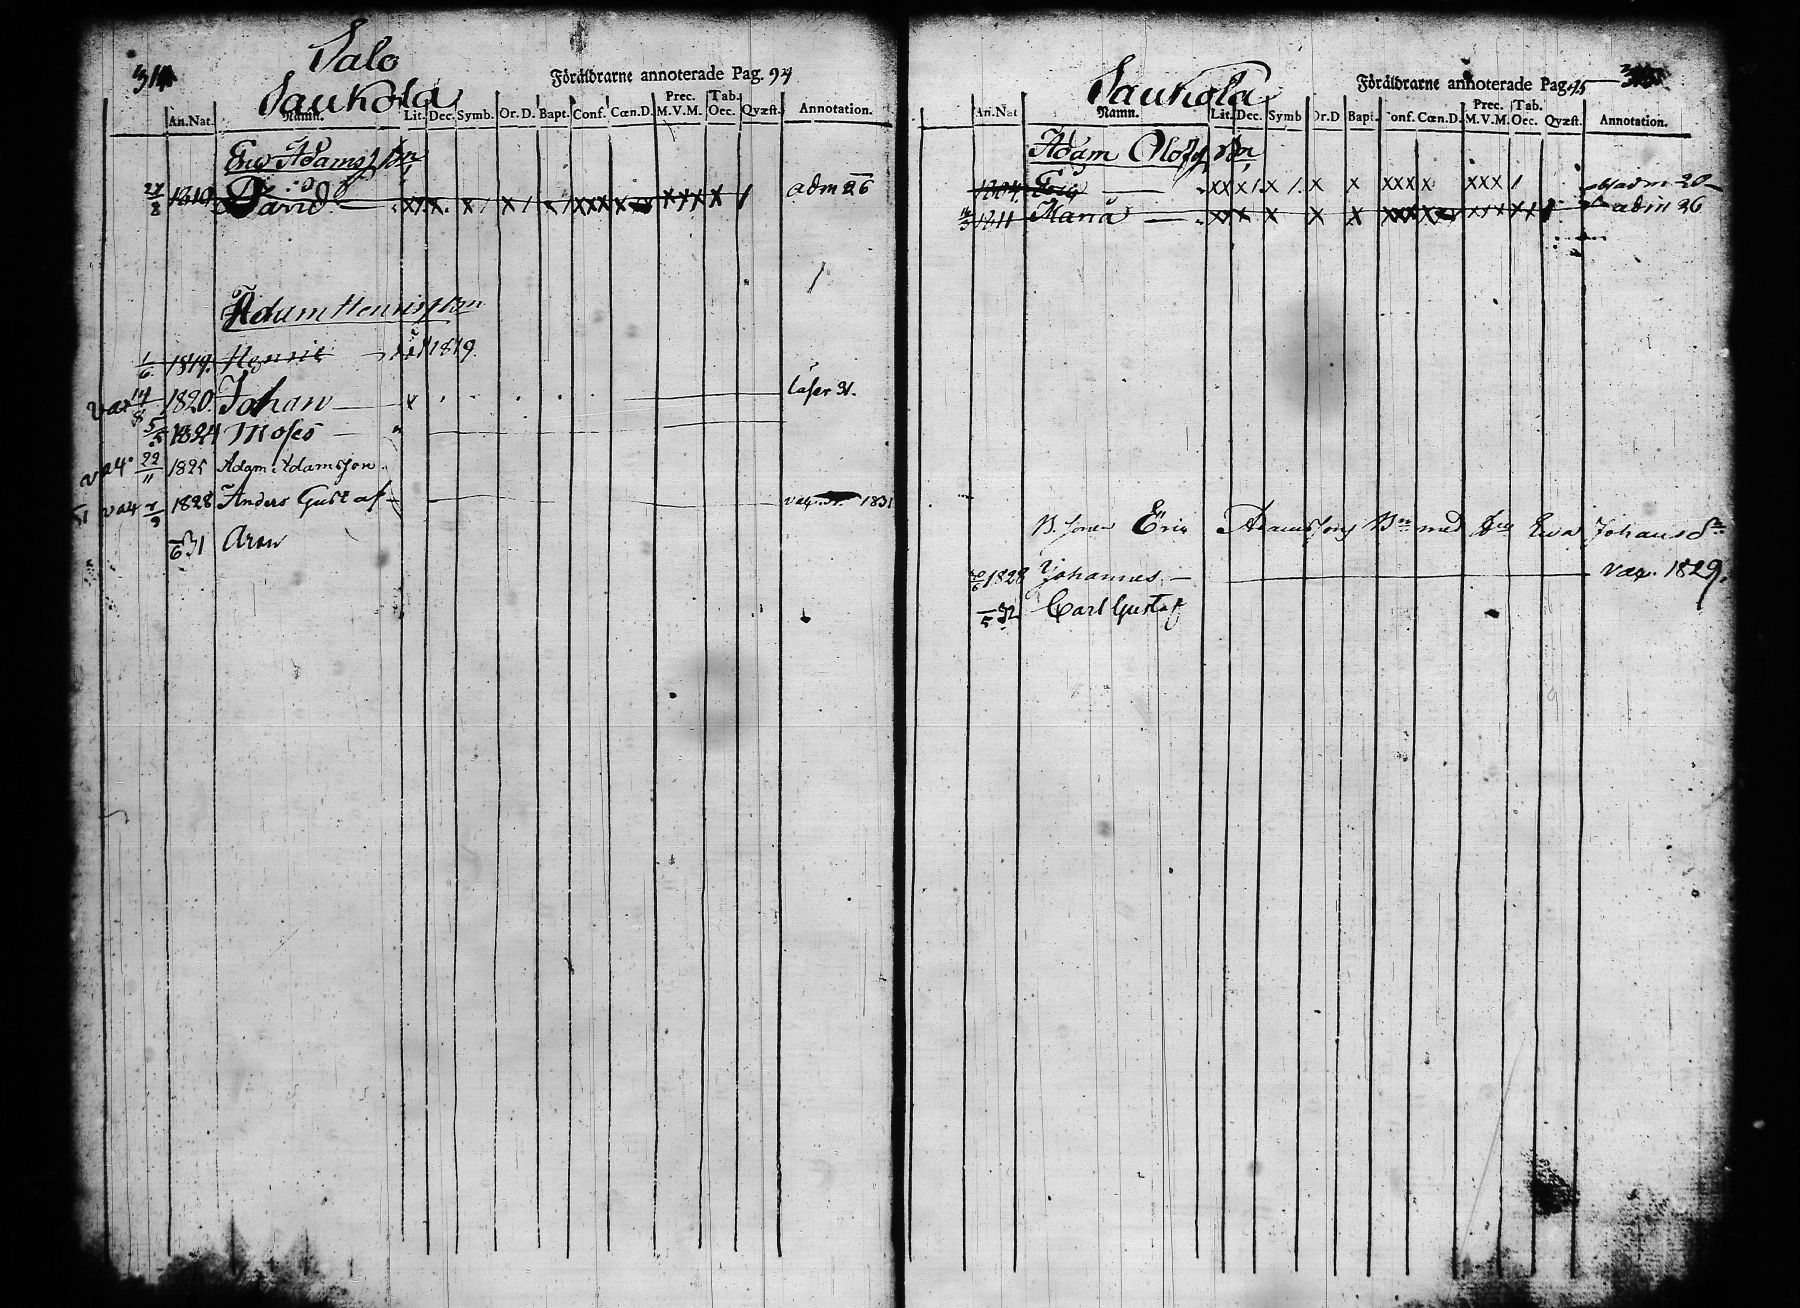 314
Salo
Saukola
Föräldrarne annoterade Pag. 94
An. Nat. Namn. Lit. Dec. Symb. Or. D. Bapt. Conf. Cœn. D. Prec. M. V. M. Tab. Oec. Qvæst. Annotation.
Eric Adamss. bn
27/8 1810 David x x x x / x / x / xxx x xxxx x / adm 26
Adam Henrics. bn
1/6 1819. Henric 1819
vac 14/8 1820. Johan x läser 31.
5/5 1824 Moses
vac. 22/11 1825 Adam Adamsson
vac 7/9 1828 Anders Gustaf 1831
/6 31 Aron
Saukola
Föräldrarne annoterade Pag. 95
An. Nat. Namn. Lit. Dec. Symb. Or. D. Bapt. Conf. Cœn. D. Prec. M. V. M. Tab. Oec. Qvæst. Annotation.
Adam Olofs. bn
1804 Eric xxx / x / x x xxx x xxx / adm 20
1811 Maria xxx x x x xxx x xxx xx adm 26
B. sonen Eric Adamssons Bn med Ewa Johansdr
/6 1828 Johannes vac. 1829.
/5 32 Carl Gustaf